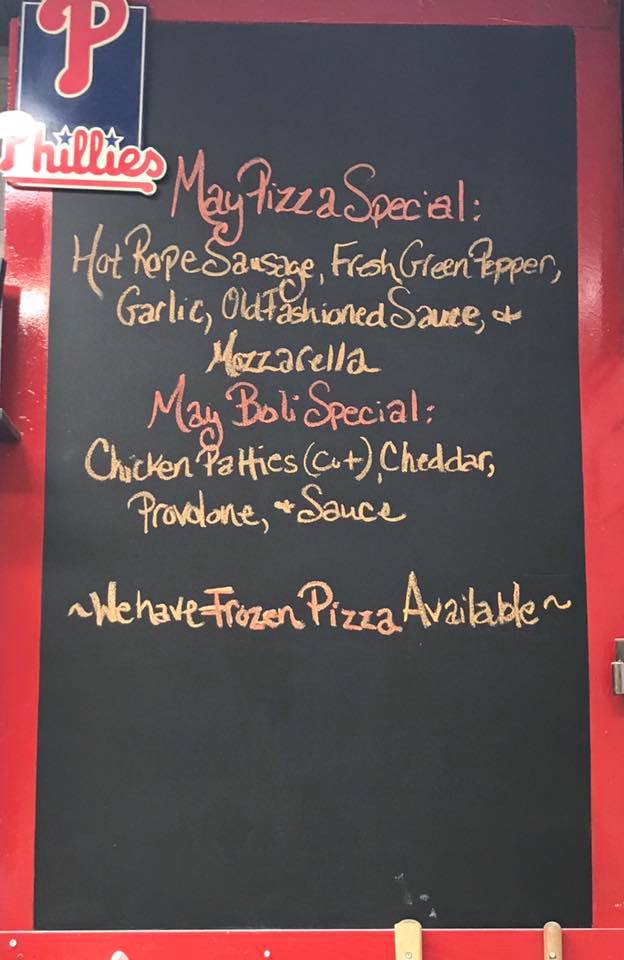 P
Phillies
May Pizza Special:
Hot Rope Sausage, Fresh Green Pepper,
Garlic, Old Fashioned Sauce, &
Mozzarella
May Boli Special:
Chicken Patties (cut), Cheddar,
Provolone, & Sauce
~We have Frozen Pizza Available~